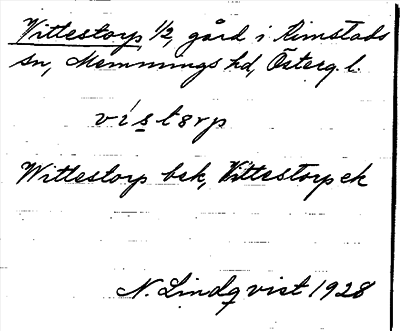 Vittestorp 1/2, gård i Kimstads
sn, Memmings hd, Österg. l.
vístorp
Wittestorp bek, Vittestorp ek
N. Lindqvist 1928